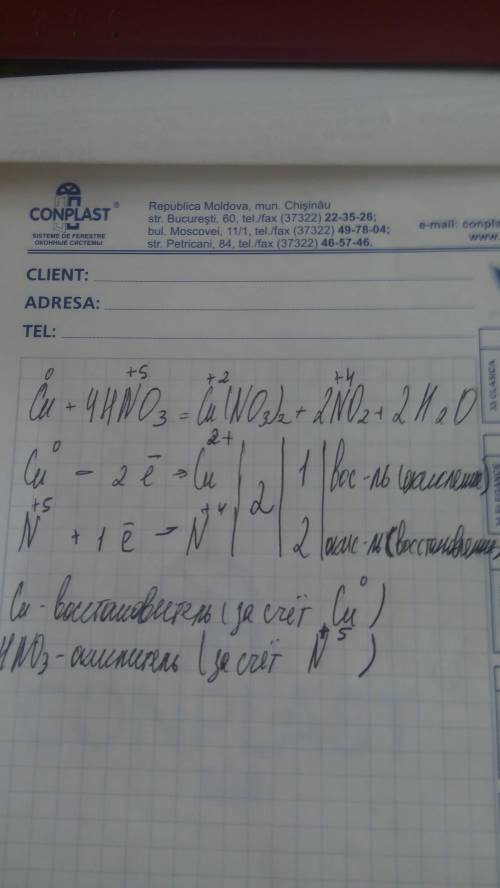 CONPLAST®
SISTEME DE FERESTRE
ОКОННЫЕ СИСТЕМЫ
Republica Moldova, mun. Chişinău
str. Bucureşti, 60, tel./fax (37322) 22-35-26;
bul. Moscovei, 11/1, tel./fax (37322) 49-78-04;
str. Petricani, 84, tel./fax (37322) 46-57-46.
e-mail: conpla
www.
CLIENT:
ADRESA:
TEL:
0 +5 +2 +4
Cu + 4HNO3 = Cu(NO3)2 + 2NO2 + 2H2O
0 2+
Cu - 2ē → Cu | 2 | 1 | вос-ль (окисление)
+5 +4
N + 1ē → N | 2 | окис-ль (восстановление)
Cu - восстановитель (за счёт Cu0)
HNO3 - окислитель (за счёт N+5)